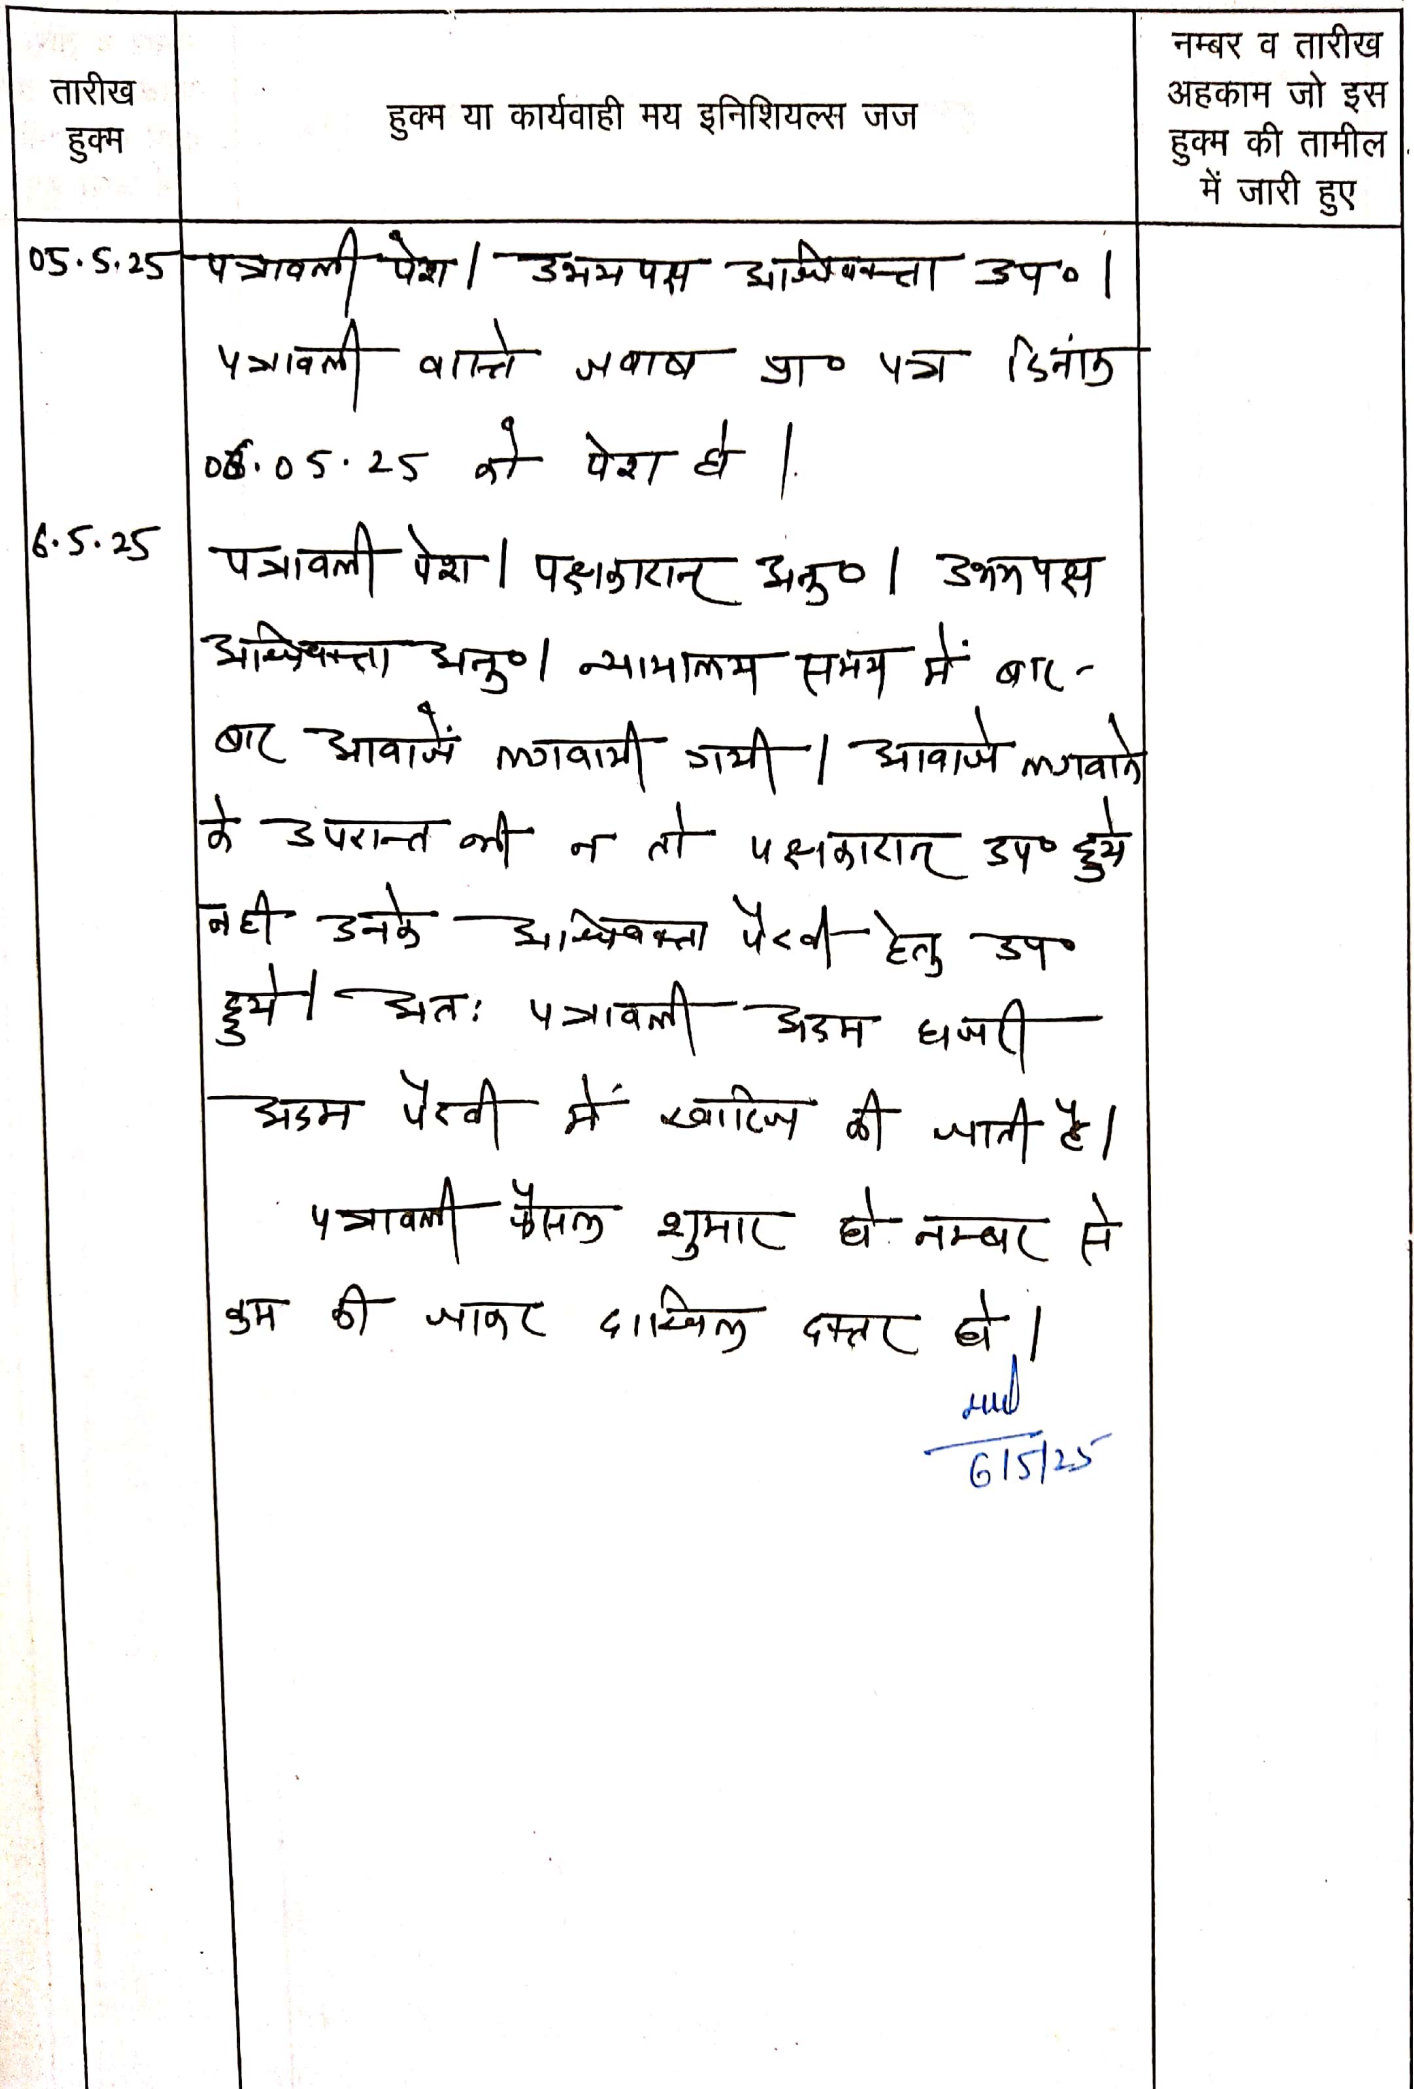 तारीख
हुक्म
हुक्म या कार्यवाही मय इनिशियल्स जज
नम्बर व तारीख
अहकाम जो इस
हुक्म की तामील
में जारी हुए
05.5.25 पत्रावली पेश। उभयपक्ष अधिवक्ता उप०।
पत्रावली वास्ते जवाब प्रा० पत्र दिनांक
06.05.25 को पेश हो।
6.5.25 पत्रावली पेश। पक्षकारान् अनु०। उभयपक्ष
अधिवक्ता अनु०। न्यायालय समय में बार-
बार आवाजें लगवायी गयी। आवाजे लगवाने
के उपरान्त भी न तो पक्षकारान् उप० हुये
नही उनके अधिवक्ता पैरवी हेतु उप०
हुये। अतः पत्रावली अदम हाजरी
अदम पैरवी में खारिज की जाती है।
पत्रावली फैसल शुमार हो नम्बर से
कम की जाकर दाखिल दफ्तर हो।
6/5/25